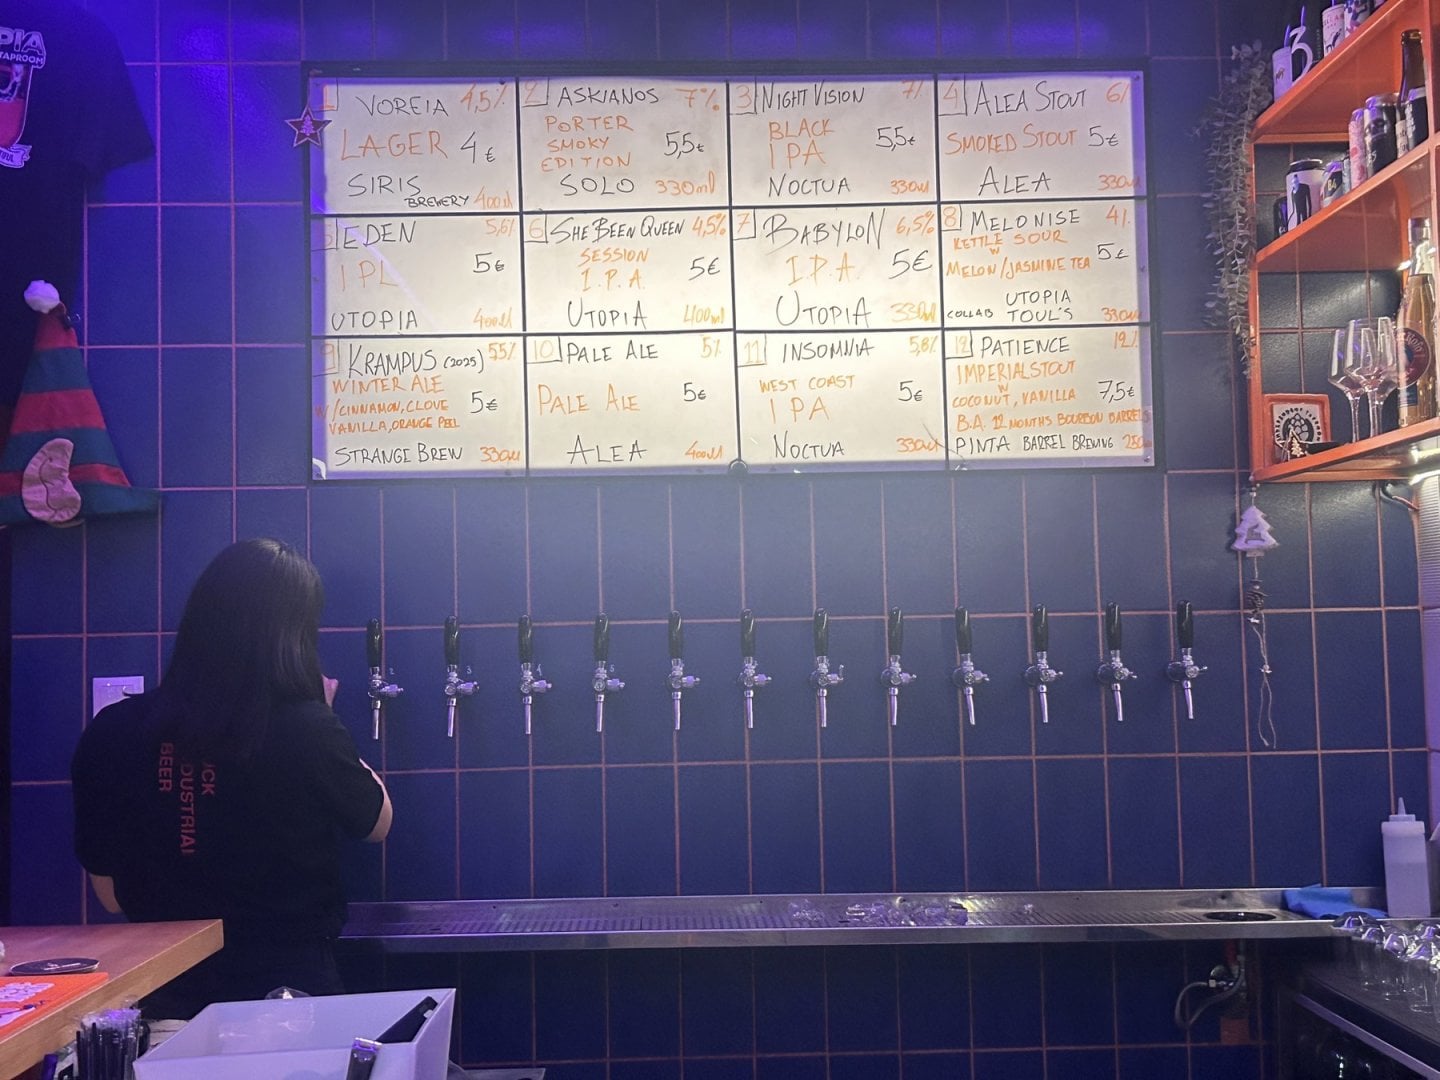 PIA
TAPROOM
1 VOREIA 4,5%
LAGER 4€
SIRIS
BREWERY 400ml
2 ASKIANOS 7%
PORTER
SMOKY
EDITION
5,5€
SOLO 330ml
3 NIGHT VISION 7%
BLACK
IPA
5,5€
NOCTUA 330ml
4 ALEA STOUT 6%
SMOKED STOUT 5€
ALEA 330ml
5 EDEN 5,6%
IPL 5€
UTOPIA 400ml
6 SHE BEEN QUEEN 4,5%
SESSION
I.P.A. 5€
UTOPIA 400ml
7 BABYLON 6,5%
I.P.A. 5€
UTOPIA 330ml
8 MELONISE 4%
KETTLE SOUR
W
MELON/JASMINE TEA
5€
COLLAB UTOPIA
TOUL'S 330ml
9 KRAMPUS (2025) 5,5%
WINTER ALE
W/CINNAMON, CLOVE
VANILLA, ORANGE PEEL
5€
STRANGE BREW 330ml
10 PALE ALE 5%
PALE ALE 5€
ALEA 400ml
11 INSOMNIA 5,8%
WEST COAST
IPA
5€
NOCTUA 330ml
12 PATIENCE 12%
IMPERIAL STOUT
W
COCONUT, VANILLA 7,5€
B.A. 12 MONTHS BOURBON BARRELS
PINTA BARREL BREWING 250
UCK
DUSTRIAL
BEER